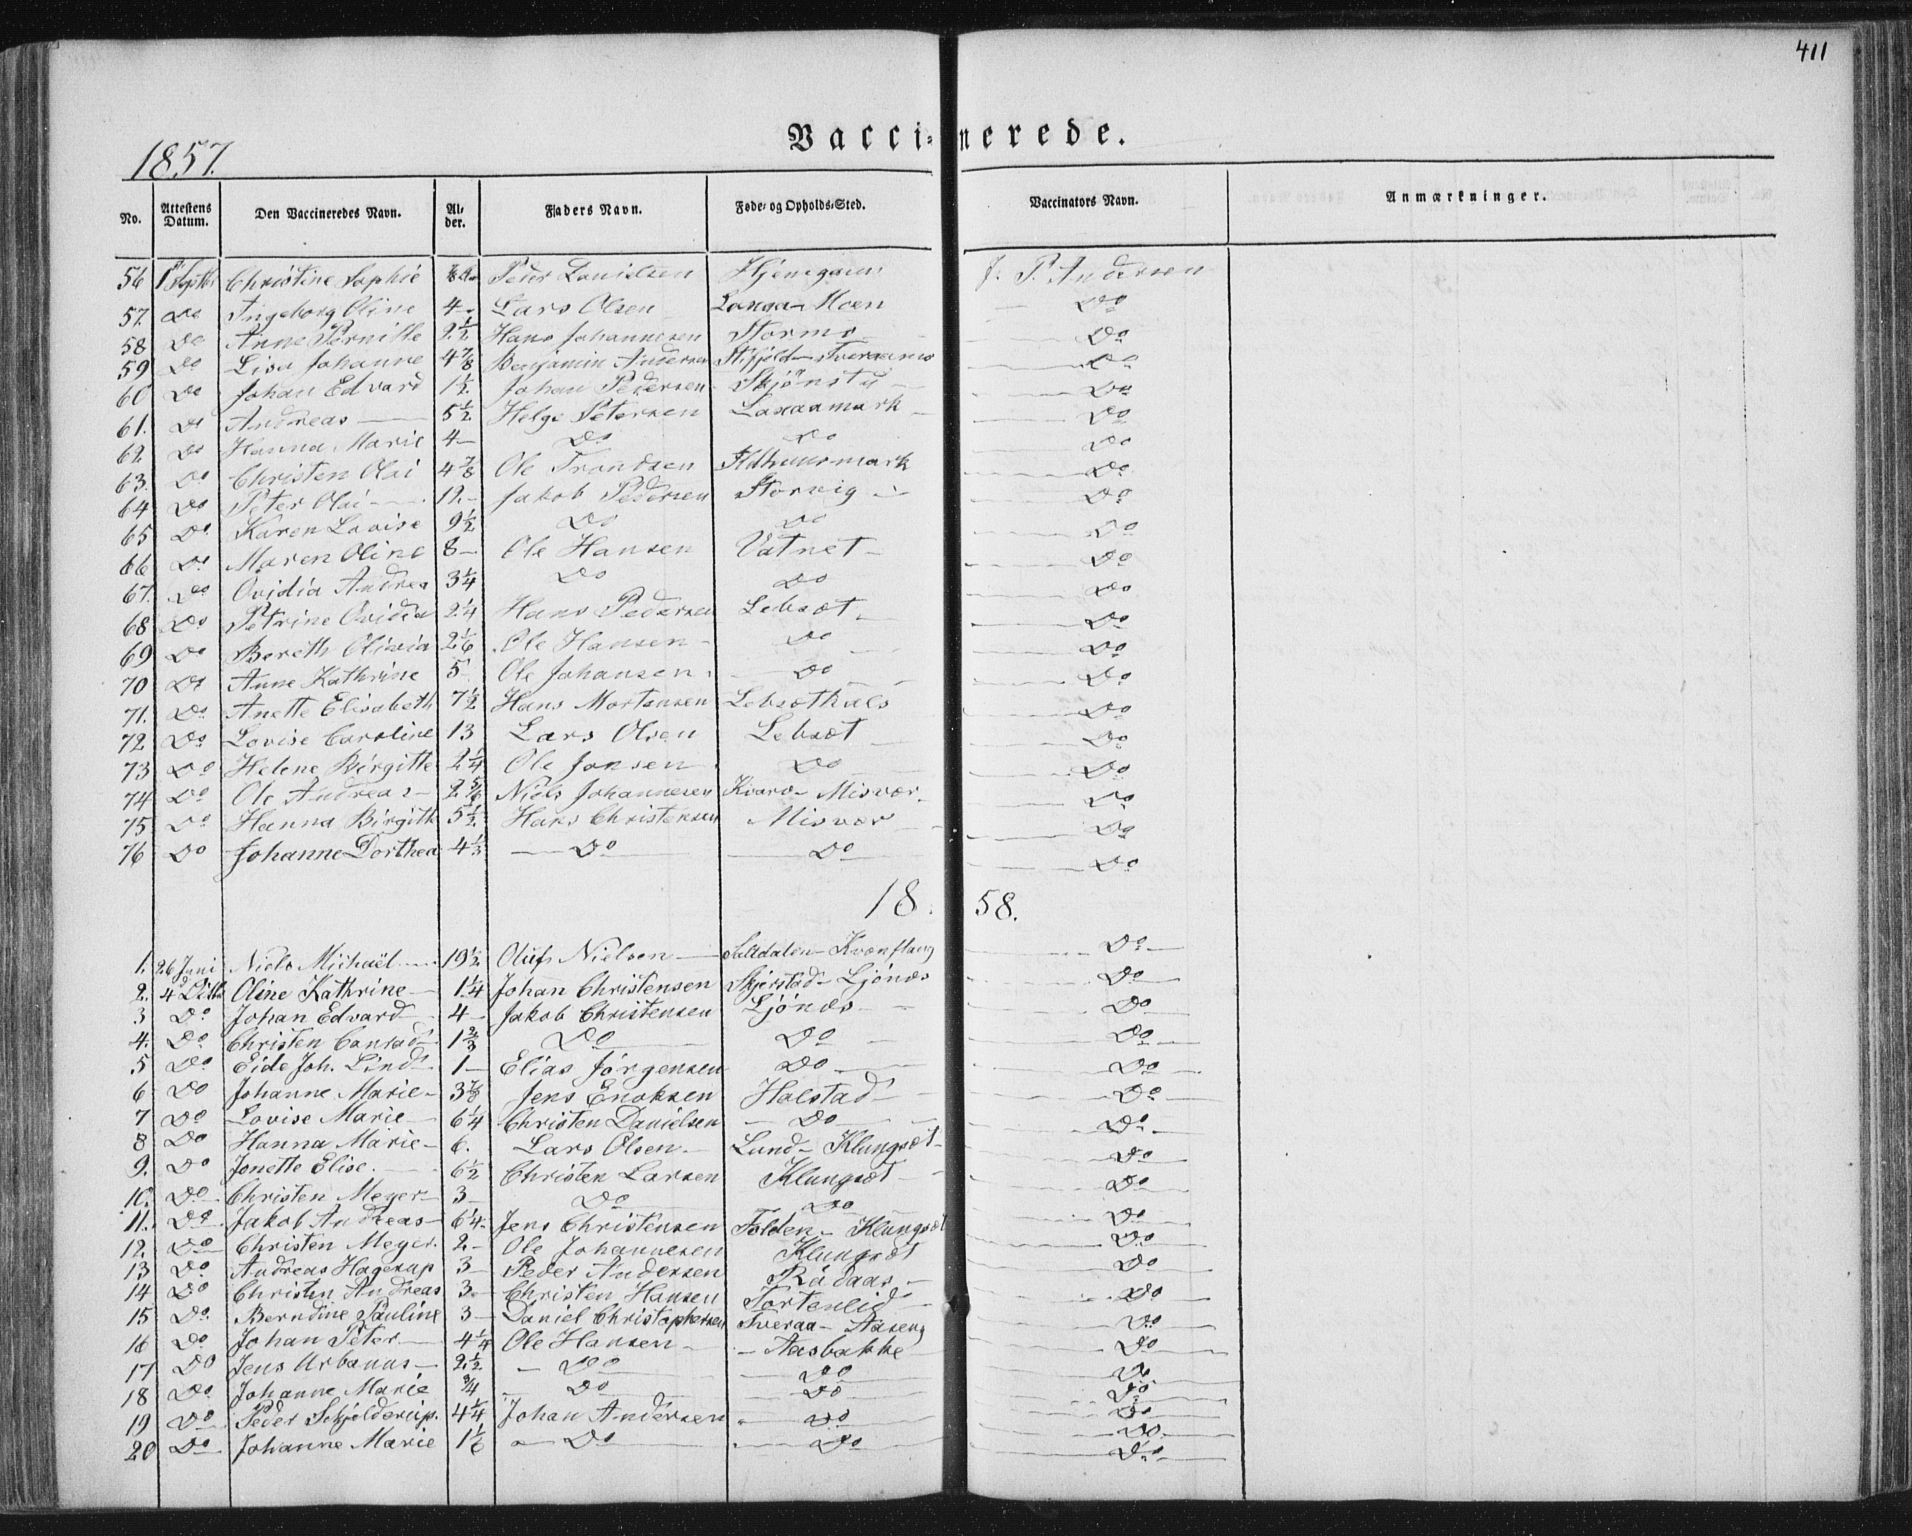 411
Vaccinerede.
1857.
No. Attestens Datum. Den Vaccineredes Navn. Alder. Faders Navn. Føde- og Opholds-Sted. Vaccinators Navn. Anmærkninger.
56 Christine Sophie Peur Danielsen J. P. Andersen
57. Do Ingeborg Oline 4- Lars Olsen Moen Do
58 Do Anne Pernille 2½ Hans Johannesen Stormo Do
59 Do Lisa Johanne 4⅞ Benjamin Andersen Do
60 Do Johan Edvard 1½ Johan Pedersen Skjönsty Do
61. Do Andreas 5½ Helge Petersen Laxaamark Do
62 Do Hanna Marie 4- Do Do Do
63. Do Christen Olai 4⅞ Ole Trondsen Do
64 Do Peter Olai 12.- Jakob Pedersen Storvig Do
65 Do Karen Lovise 9½ Do Do Do
66 Do Maren Oline 8- Ole Hansen Vatnet Do
67. Do Ovidia Andrea 3¼ Do Do Do
68 Do Petrine Ovidia 2¼ Hans Pedersen Lebsæt Do
69 Do Bereth Olivia 2⅙ Ole Hansen Do Do
70 Do Anne Kathrine 5 Ole Johansen Do Do
71. Do Anette Elisabeth 7½ Hans Mortensen Lebsæthals Do
72 Do Lovise Caroline 13 Lars Olsen Lebsæt Do
73 Do Helene Birgitte 2¼ Ole Jonsen Do Do
74 Do Ole Andreas 2⅚ Niels Johannesen Kvarv- Misvær Do
75 Do Hanna Birgith 5½ Hans Christensen Misvær Do
76 Do Johanne Dorthea 4⅓ Do Do Do
1858.
1. 26 Juni Niels Michaël 19½ Oluf Nielsen Saltdalen- Do
2. 4 Oline Kathrine 1¼ Johan Christensen Skjerstad- Ljönæs Do
3 Do Johan Edvard 4- Jakob Christensen Ljönæs Do
4. Do Christen Conrad 1⅔ Do Do Do
5 Do Eide Joh. Lind 1- Elias Jörgensen Do Do
6 Do Johanne Marie 3⅞ Jens Enoksen Halstad Do
7 Do Lovise Marie 6¼ Christen Danielsen Do Do
8 Do Hanna Marie 6. Lars Olsen Lund- Klungsæt Do
9. Do Jonette Elise 6½ Christen Larsen Klungsæt Do
10. Do Christen Meyer 3- Do Do Do
11. Do Jakob Andreas 6¼ Jens Christensen Folden- Klungsæt Do
12. Do Christen Meyer 2.- Ole Johannesen Klungsæt Do
13 Do Andreas Hagerup 3- Peder Andersen Do
14 Do Christen Andreas 3- Christen Hansen Tortenlid Do
15 Do Berndine Pauline 3- Daniel Christophersen Tveraa- Aaseng Do
16 Do Johan Peter 4¼ Ole Hansen Aasbakke Do
17 Do Jens Urbanus 2½ Do Do Do
18 Do Johanne Marie ¾ Do Do Do
19 Do Peder Schjelderup. 4¼ Johan Andersen Do Do
20 Do Johanne Marie 1⅙ Do Do Do